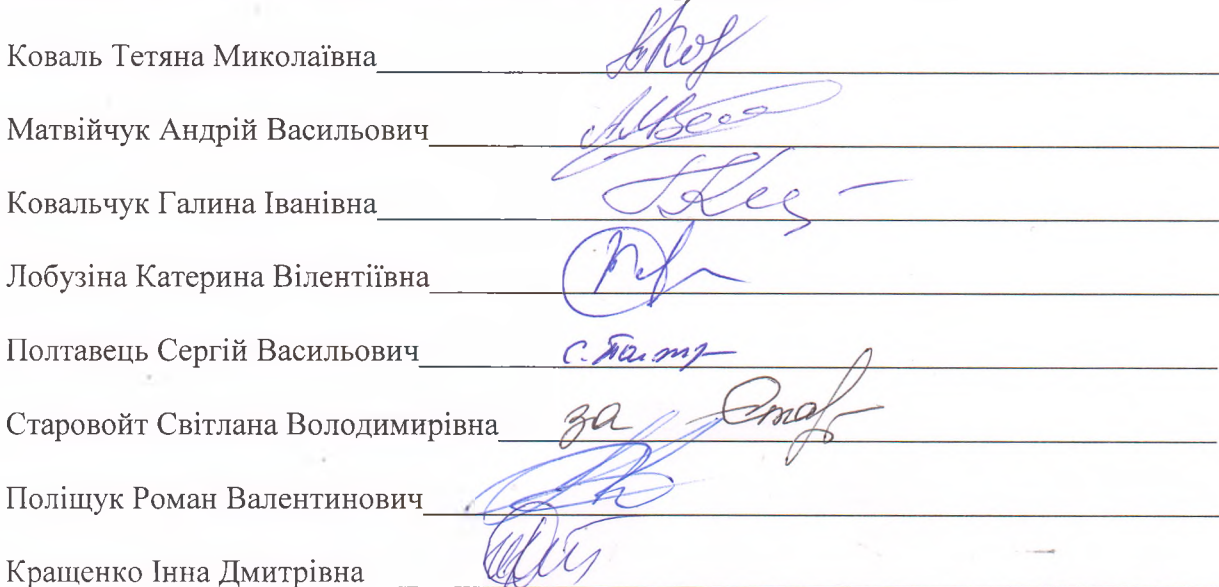 Коваль Тетяна Миколаївна
Матвійчук Андрій Васильович
Ковальчук Галина Іванівна
Лобузіна Катерина Вілентіївна
Полтавець Сергій Васильович
Старовойт Світлана Володимирівна за
Поліщук Роман Валентинович
Кращенко Інна Дмитрівна